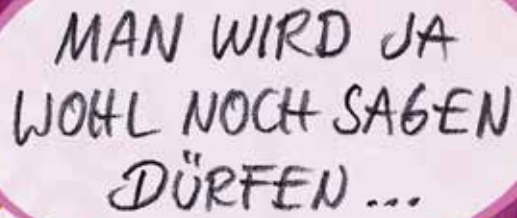 MAN WIRD JA
WOHL NOCH SAGEN
DÜRFEN...